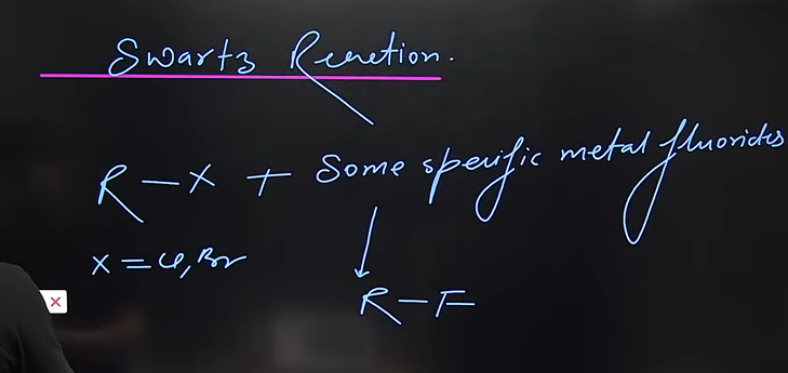 Swartz Reaction.
R-X + Some specific metal fluorides
X = Cl, Br
R-F